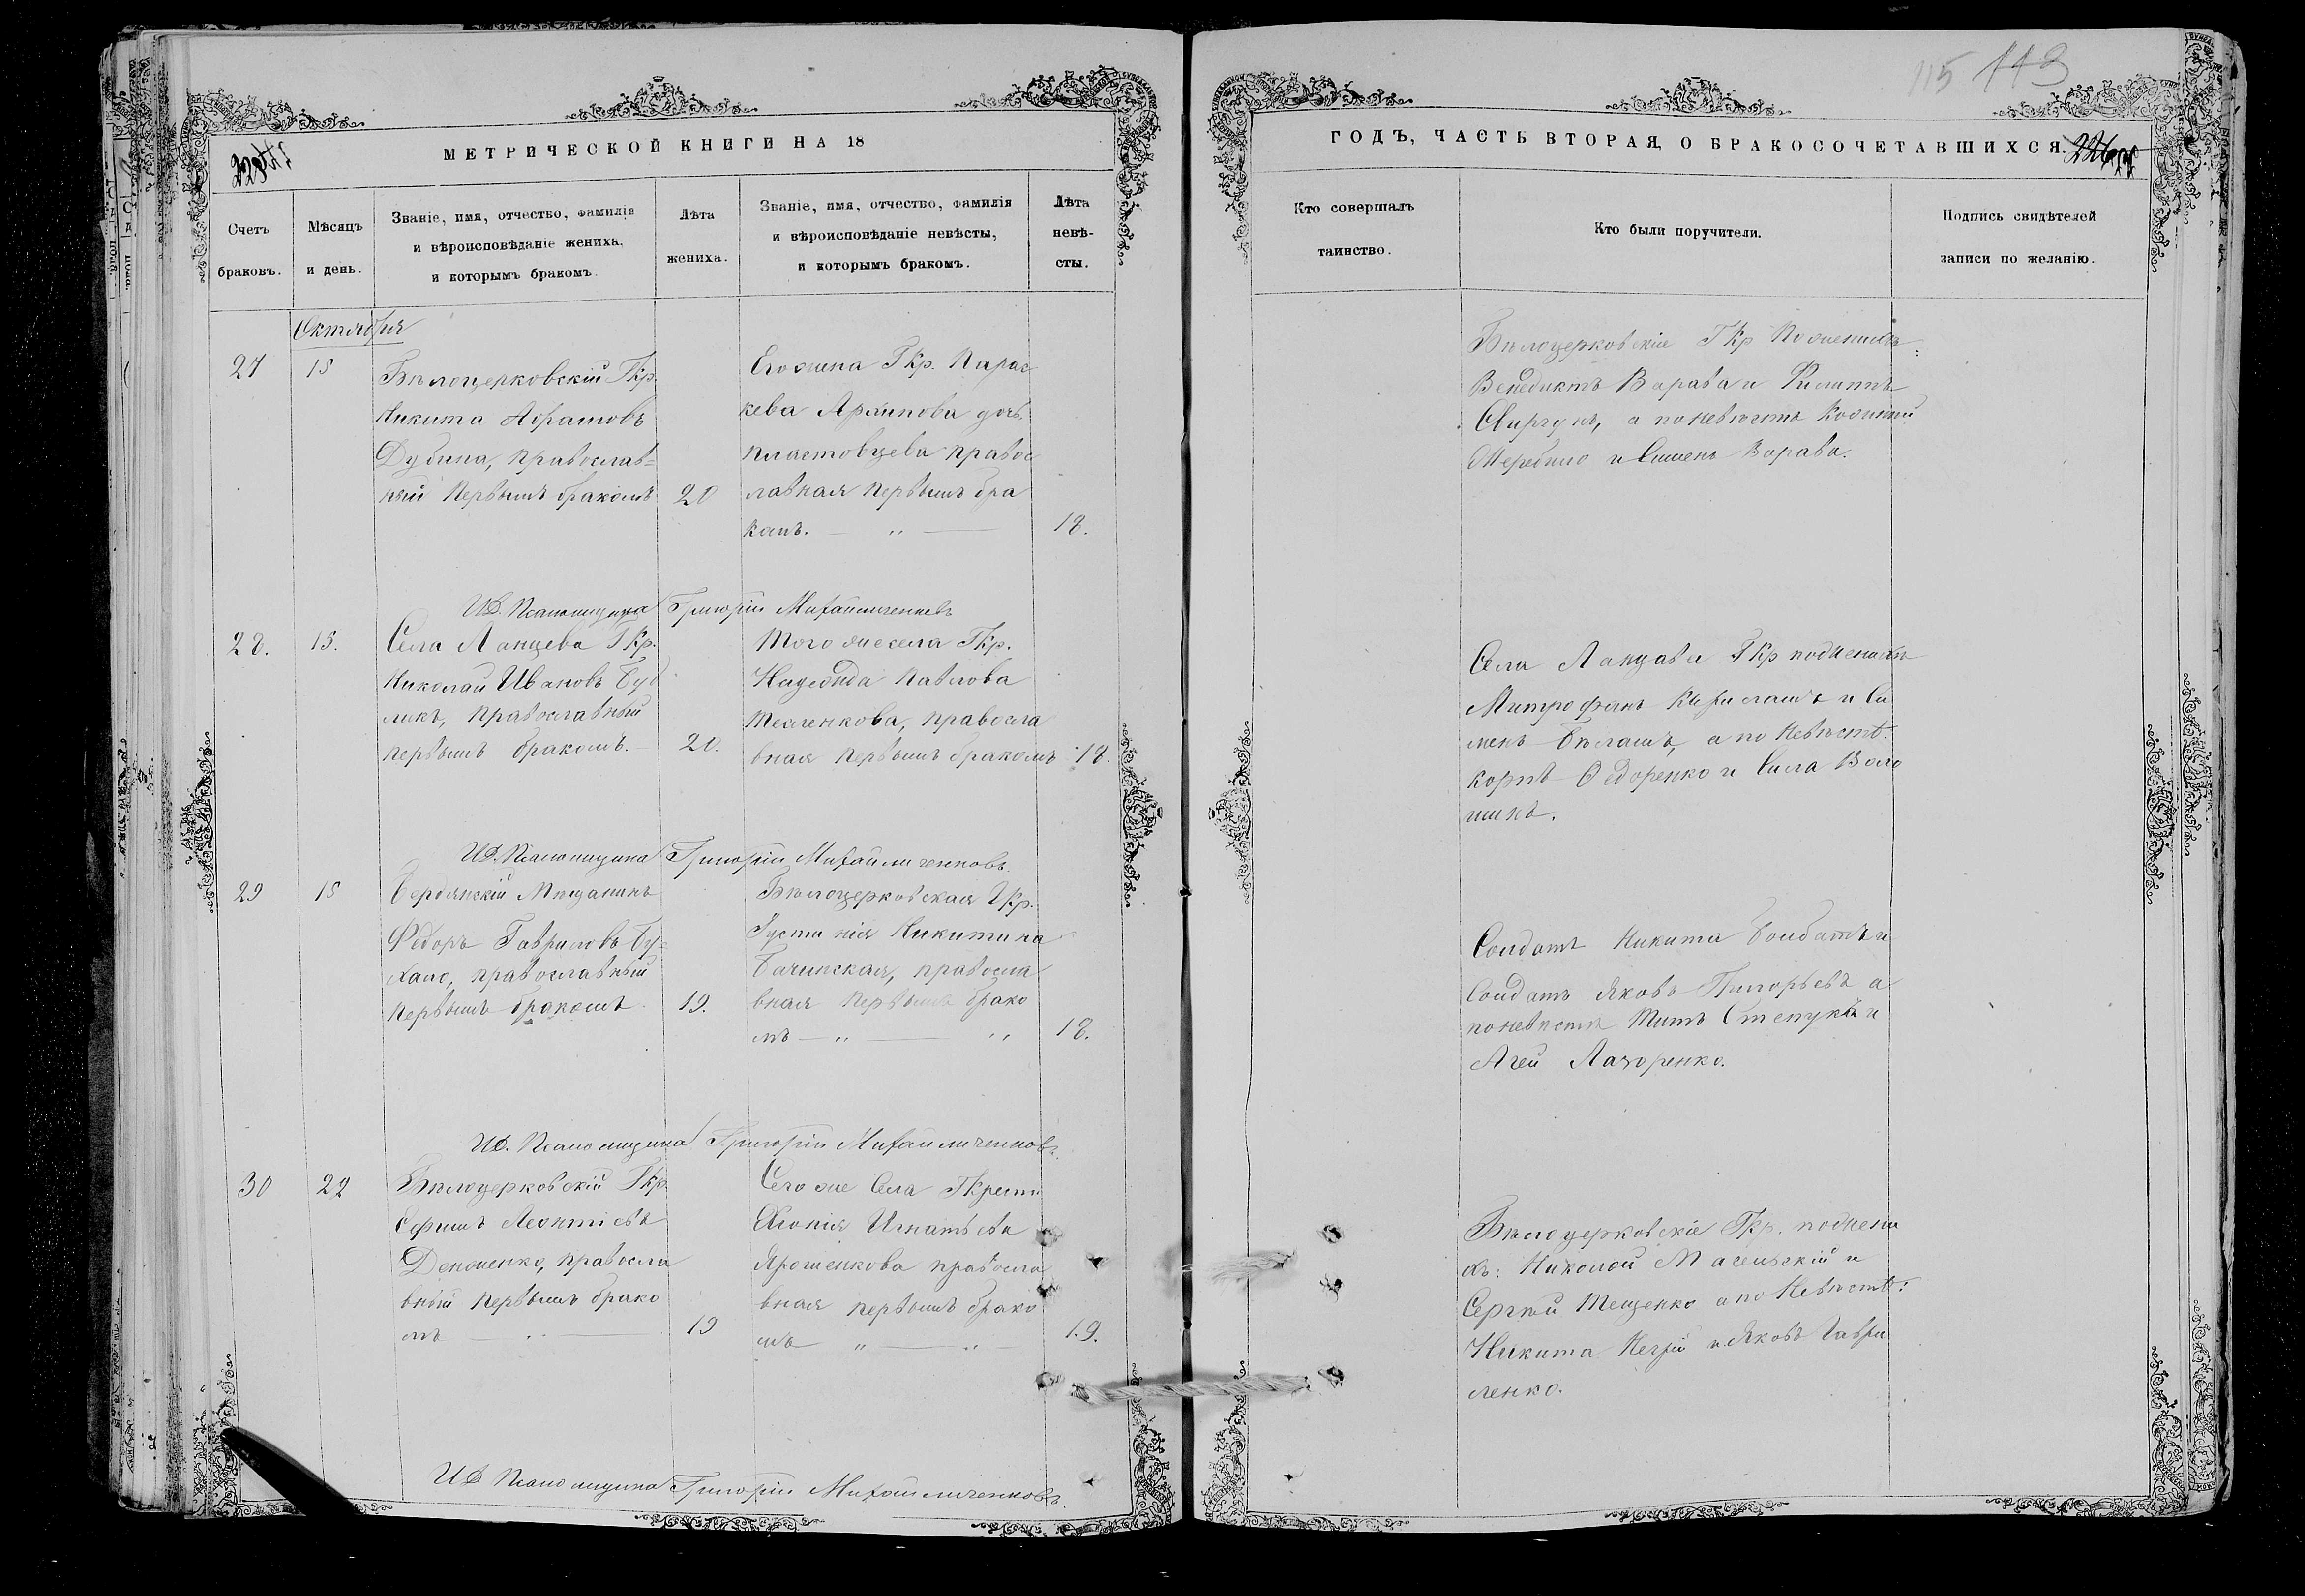 115 113
МЕТРИЧЕСКОЙ КНИГИ НА 18
ГОДЪ, ЧАСТЬ ВТОРАЯ, О БРАКОСОЧЕТАВШИХСЯ.
Счетъ
браковъ.
Мѣсяцъ
и день.
Званіе, имя, отчество, фамилія
и вѣроисповѣданіе жениха,
и которымъ бракомъ.
Лѣта
жениха.
Званіе, имя, отчество, фамилія
и вѣроисповѣданіе невѣсты,
и которымъ бракомъ.
Лѣта
невѣ-
сты.
Кто совершалъ
таинство.
Кто были поручители.
Подпись свидѣтелей
записи по желанію.
Октября
27
15
Бѣлоцерковскій Гкр.
Никита
Дубина, православ=
ный первымъ бракомъ
20
Гкр. Парас
кева Архипова дочь
православная первымъ бра
18.
Бѣлоцерковскіе Гкр по женихѣ:
Венедиктъ Варава и Филиппъ
Свиргунъ, а по невѣстѣ
и Сименъ Варава.
И.Д. Псаломщика Григорій Михайличенковъ
28.
15.
Села Ланцева Гкр.
Николай Ивановъ Буб
ликъ, православный
первымъ бракомъ.
20.
Того же села Гкр.
Надежда Павлова
православ
вная первымъ бракомъ
18.
Села Гкр по женихѣ
Митрофанъ и Си
менъ Бѣлашъ, а по невѣстѣ:
Ѳедоренко и Сила Воло
шинъ.
И.Д. Псаломщика Григорій Михайличенковъ.
29
15
Бердянскій Мѣщанинъ
Федоръ Гавриловъ Бу=
хало, православный
первымъ бракомъ
19.
Бѣлоцерковская Гкр.
Іустинія Никитина
православ
вная первымъ брако
мъ
18.
Солдатъ Никита и
Солдатъ Яковъ Григорьевъ а
по невѣстѣ Титъ и
Агей Лазоренко.
И.Д. Псаломщика Григорій Михайличенковъ.
30
22
Бѣлоцерковскій Гкр.
Ефимъ Леонтіевъ
правосла
вный первымъ брако
мъ
19
Сего же Села
Игнатьева
Ярошенкова правосла
вная первымъ брако
мъ
19.
Бѣлоцерковскіе Гкр. по жени
хѣ: Николай и
Сергѣй Тещенко а по невѣстѣ:
Никита и Яковъ Гаври
ленко.
И.Д. Псаломщика Григорій Михайличенковъ.